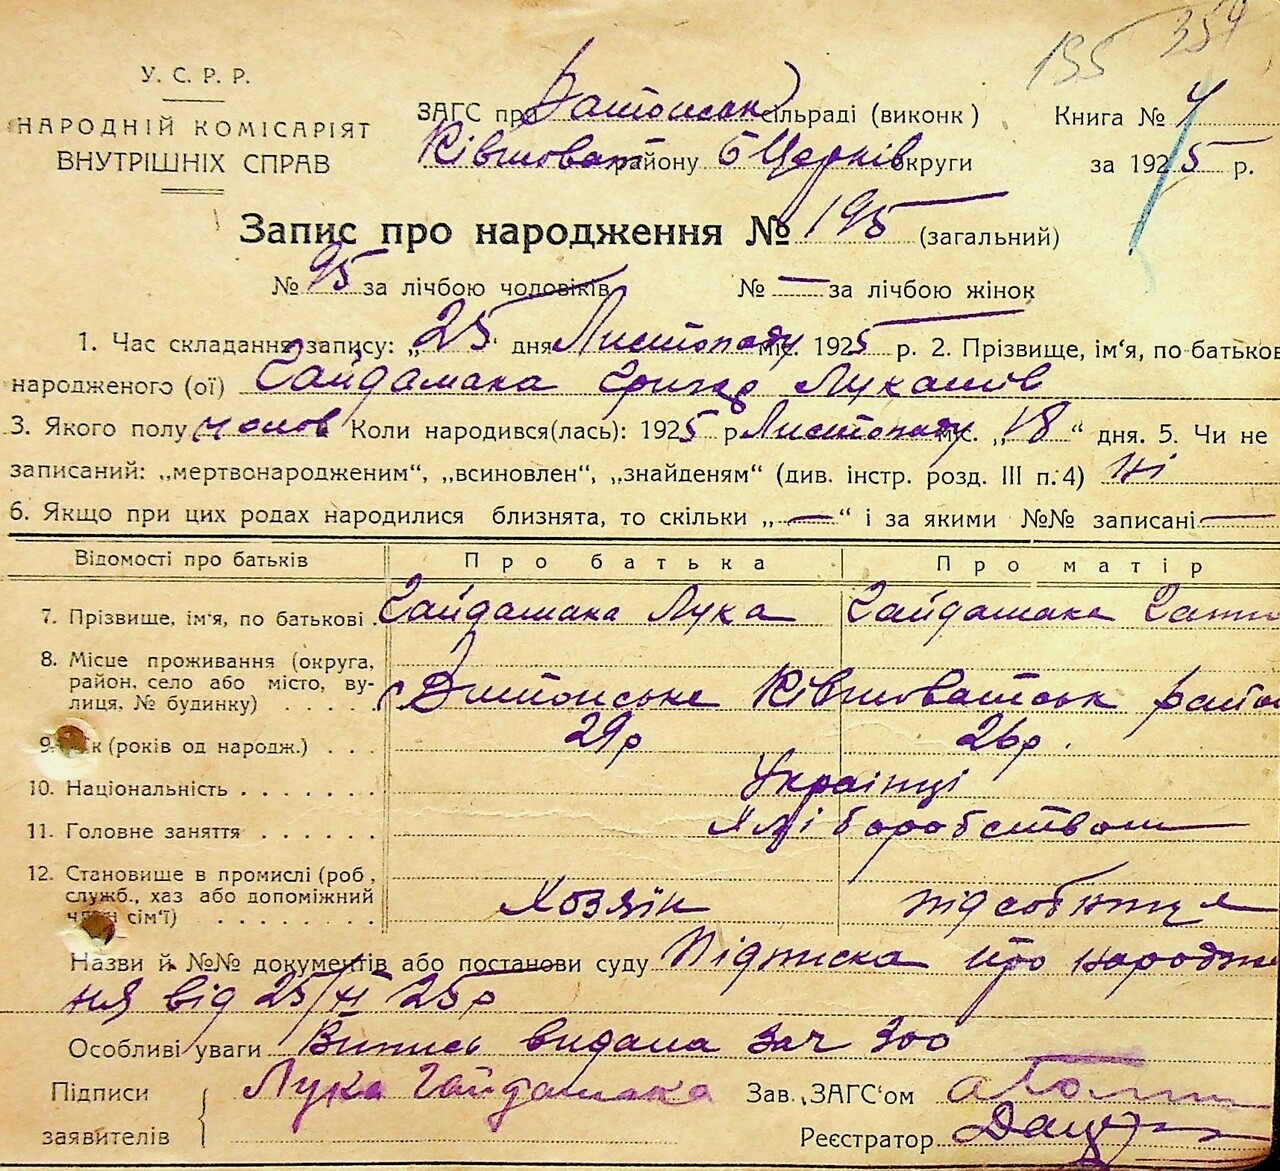 155 354
У. С. Р. Р.
НАРОДНІЙ КОМІСАРІЯТ
ВНУТРІШНІХ СПРАВ
ЗАГС при сільраді (виконк)
Книга № 4
Ківшоват району Б Церків округи
за 1925 р.
Запис про народження № 195 (загальний)
№ 95 за лічбою чоловіків № — за лічбою жінок
1. Час складання запису: „25“ дня Листопаду міс. 1925 р. 2. Прізвище, ім'я, по батькові
народженого (ої) Гайдамака Григор Лукашів
3. Якого полу чолов Коли народився(лась): 1925 р Листопаду міс. „18“ дня. 5. Чи не
записаний: „мертвонародженим“, „всиновлен“, „знайденям“ (див. інстр. розд. III п. 4) ні
6. Якщо при цих родах народилися близнята, то скільки „—“ і за якими №№ записані —
Відомості про батьків Про батька Про матір
7. Прізвище, ім'я, по батькові Гайдамака Лука Гайдамака
8. Місце проживання (округа,
район, село або місто, ву-
лиця, № будинку) Ківшоватськ район
9. Вік (років од народж.) 29р 26р.
10. Національність Українці
11. Головне заняття хліборобством
12. Становище в промислі (роб.,
служб., хаз або допоміжний
член сім'ї) Хозяїн підсобниця
Назви й №№ документів або постанови суду Підписка про народжен
ня від 25/XI 25р
Особливі уваги Випись видана зач 300
Підписи Лука Гайдамака Зав. „ЗАГС'ом
заявителів Реєстратор